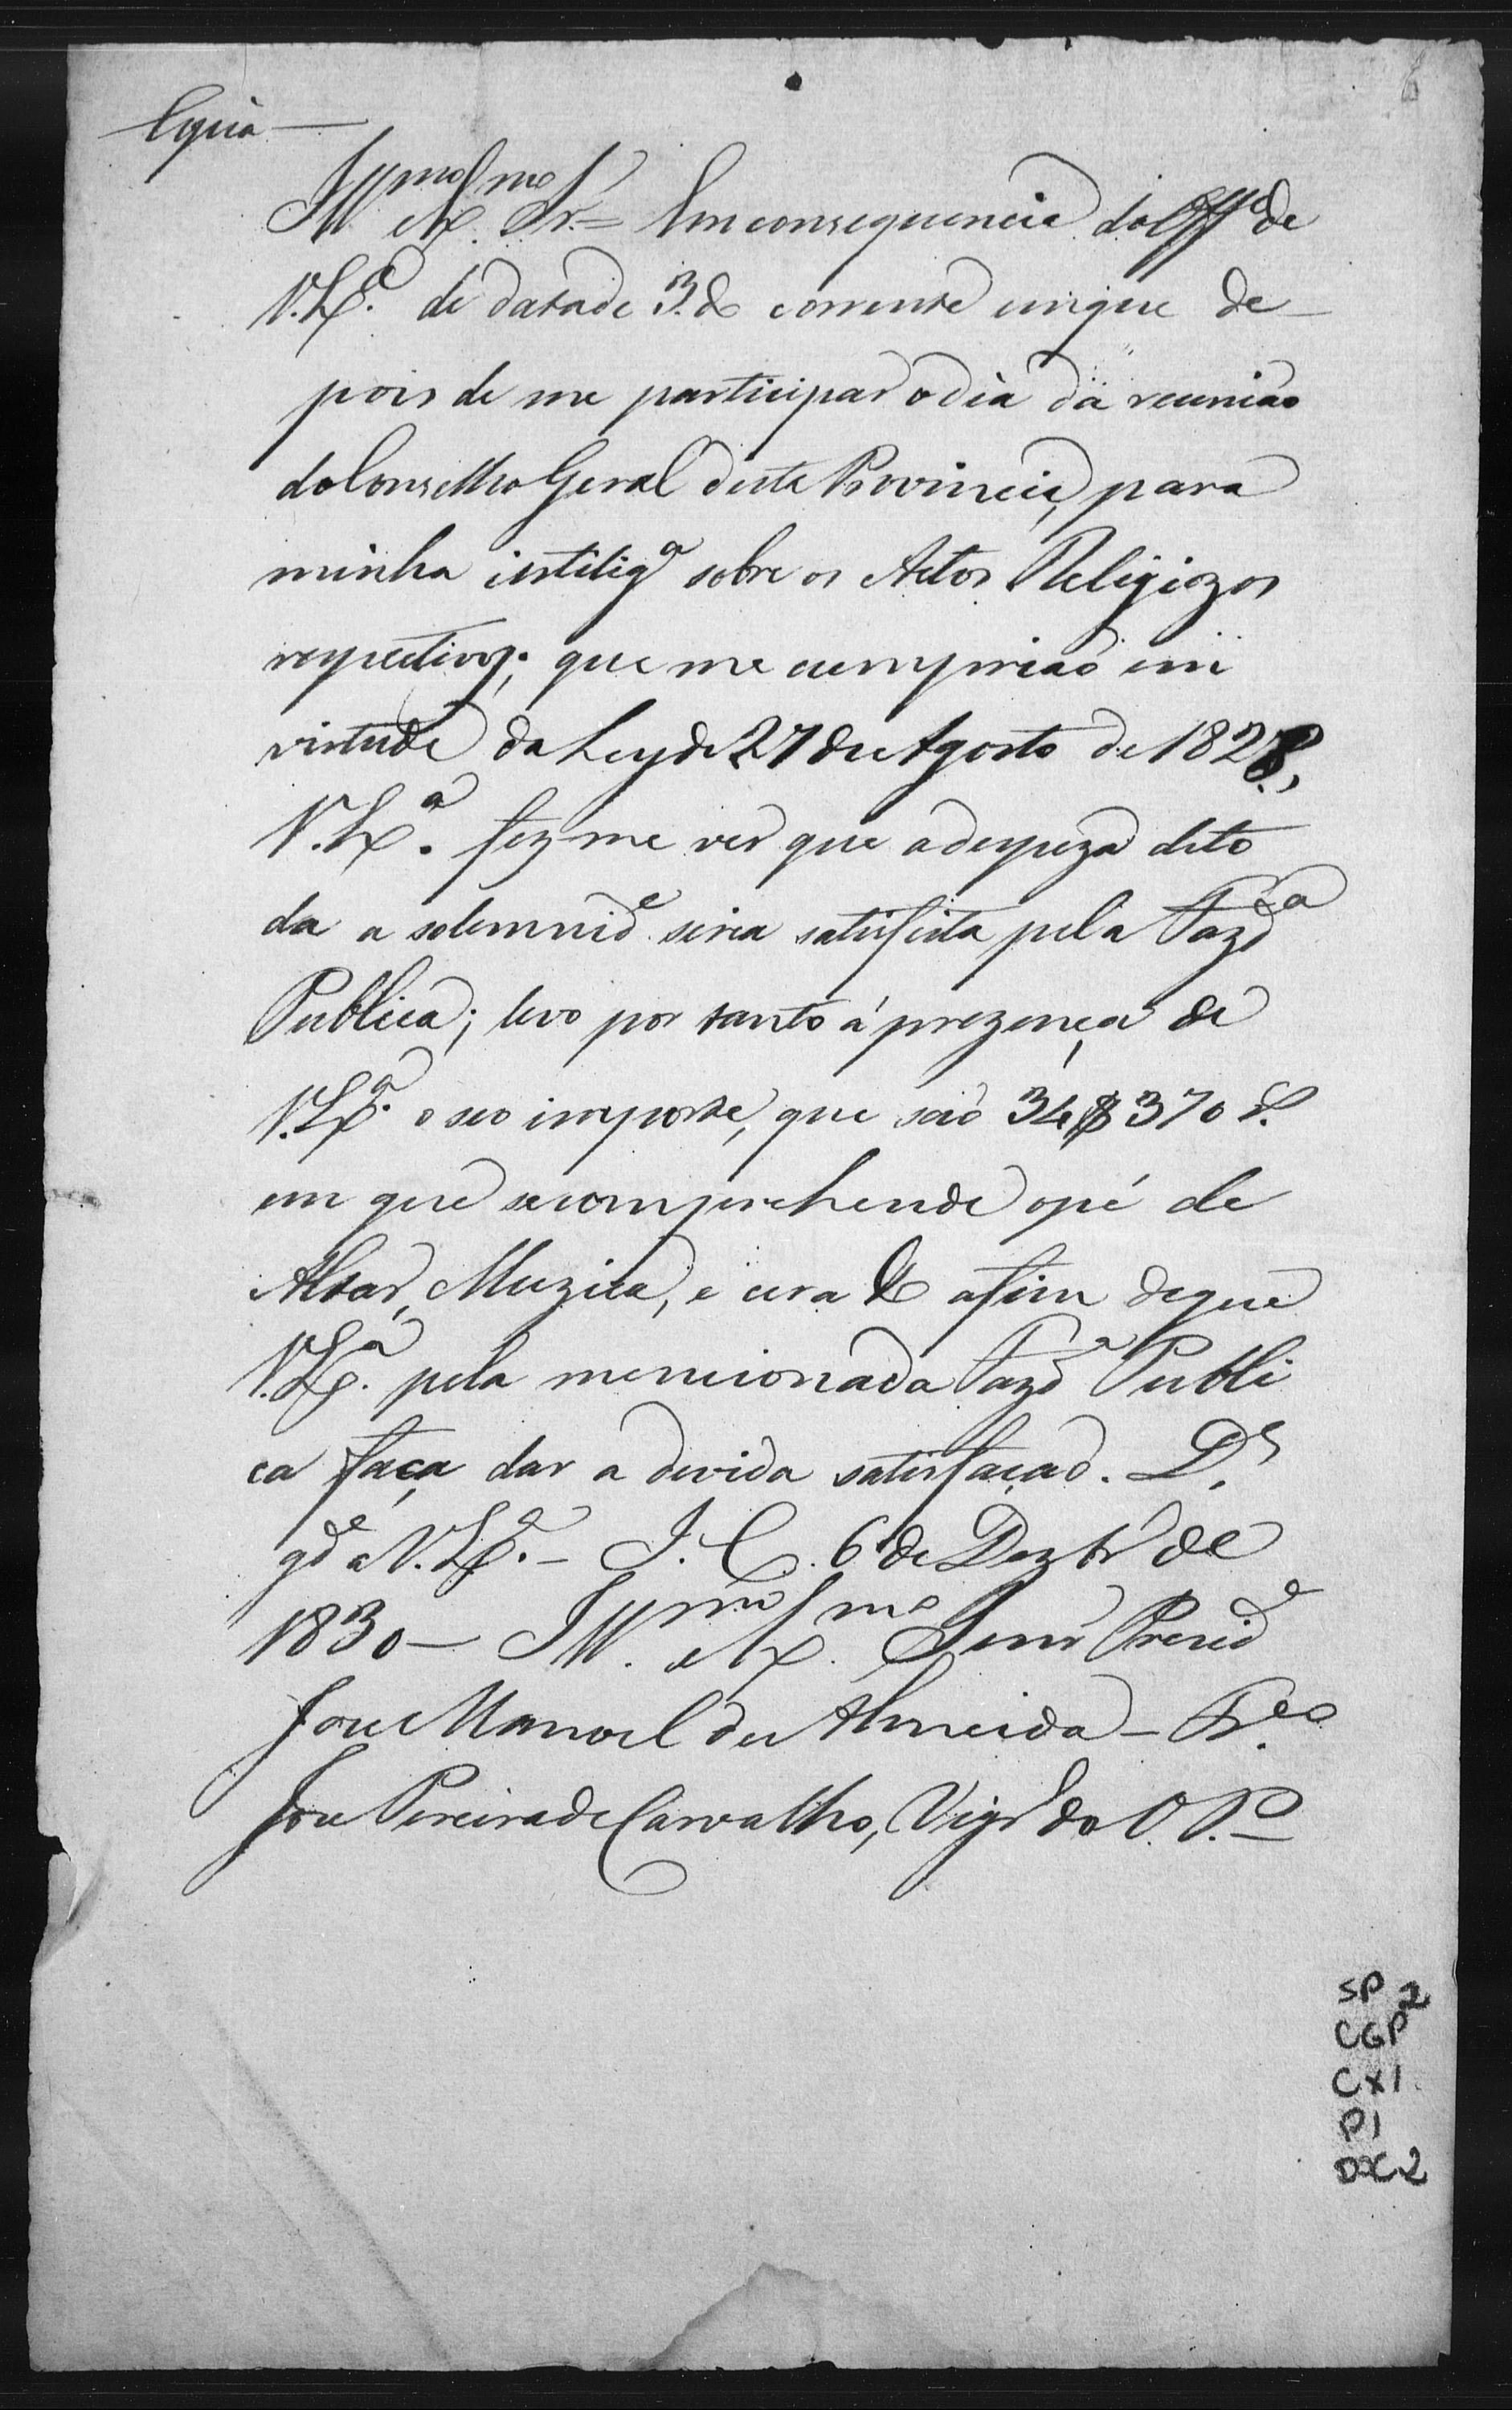 Copia
Ill.mo e Ex.mo Sr. = Em consequencia do Off.o de
V. Ex.a de data de 3. do corrente em que de-
pois de me participar o dia da reuniaõ
do Conselho Geral desta Provincia, para
minha intelig.a sobre os Actos Religiozos
respectivos; que me cumpriaõ em
virtude da Ley de 27 de Agosto de 1828,
V. Ex.a fez-me ver que a despeza de to
da a solemnid.e seria satisfeita pela Fazd.a
Publica; levo por tanto á prezença de
V. Ex.a o seo importe, que saõ 34$370 r.
em que se comprehende o pé de
Altar, Muzica, e cera &c afim de que
V. Ex.a pela mencionada Fazd.a Publi
ca faça dar a devida satisfaçaõ. D.s
gd.e a V. Ex.a - I. C. 6 de Dezbr.o de
1830 - Ill.mo e Ex.mo Senr. Presid.e
Jose Manoel de Almeida - Fr.co
Jose Pereira de Carvalho, Vigr.o do O. P. -
SP 2
CGP
CX1
P1
DOC 2